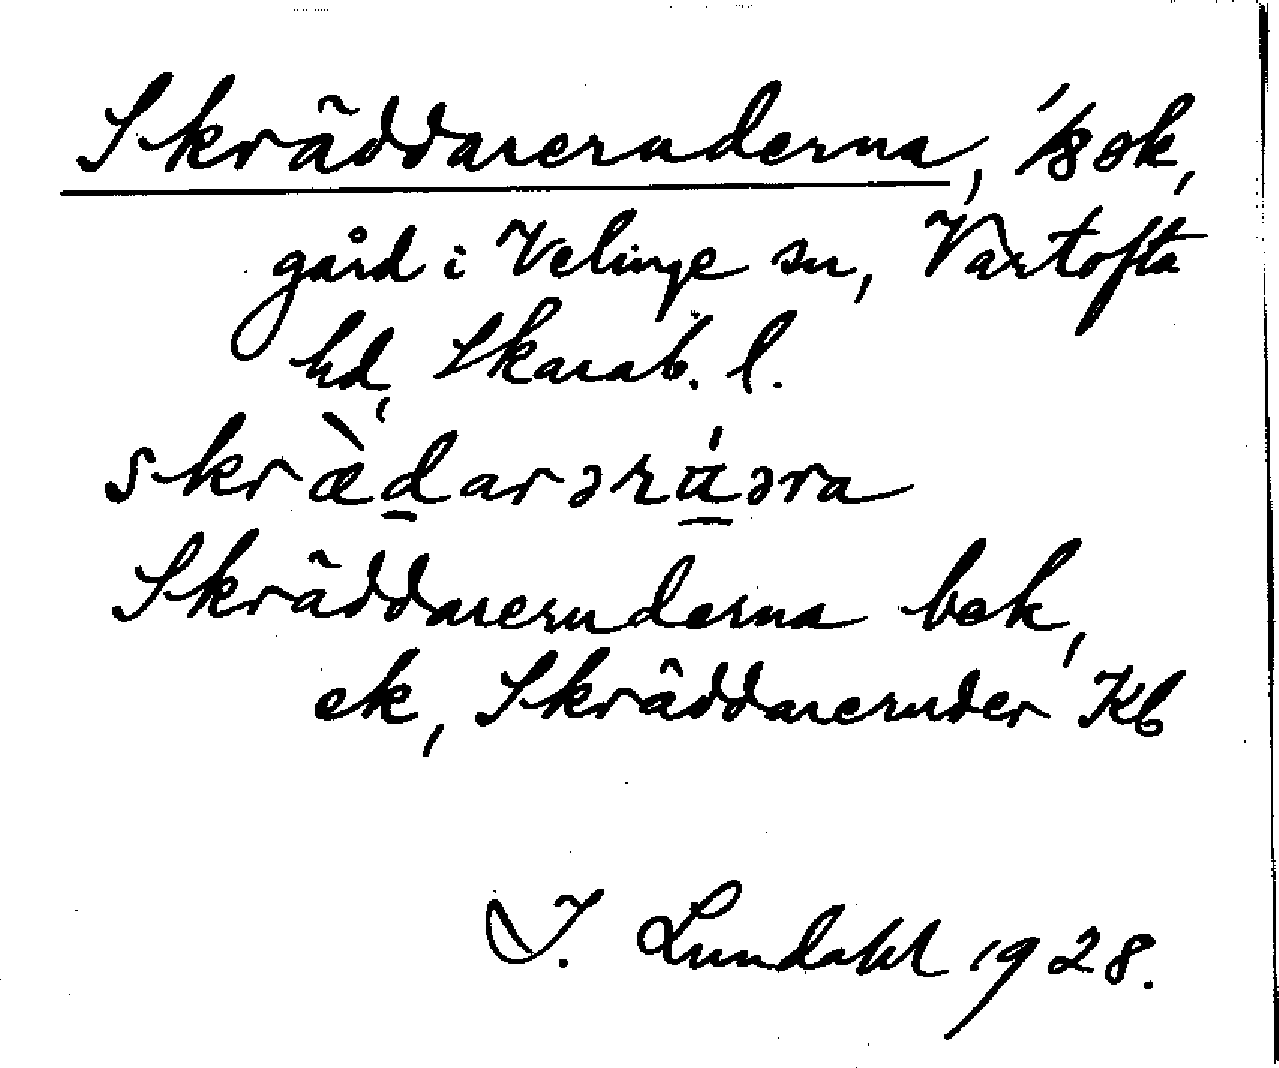 Skräddareruderna, 1/8 ok,
gård i Velinge sn, Vartofta
hd, Skarab. l.
skræ̀darərʉ́əra
Skräddareruderna bek,
ek, Skräddareruder Kb
I. Lundahl 1928.